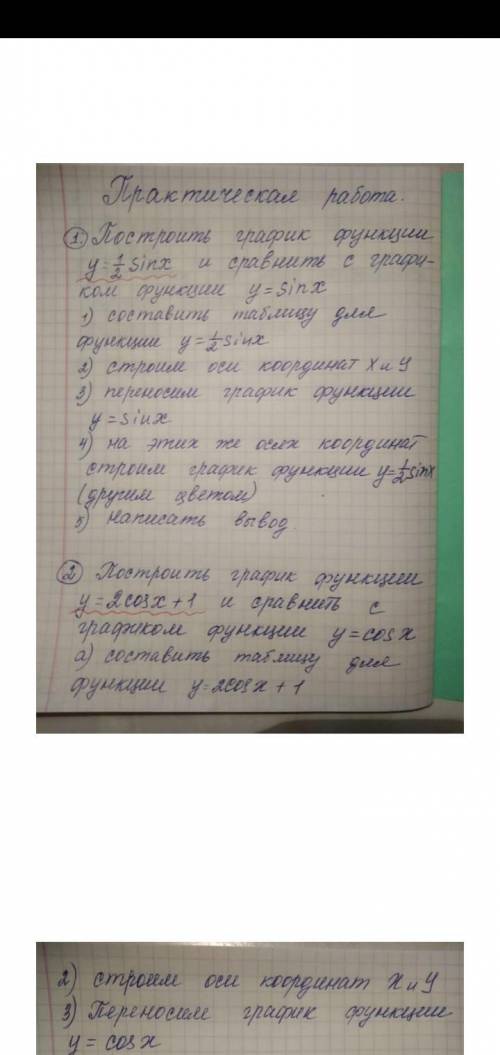 Практическая работа.
1. Построить график функции
y = 1/2 sinx и сравнить с графи-
ком функции y = sinx
1) составить таблицу для
функции y = 1/2 sinx
2) строим оси координат X и Y
3) переносим график функции
y = sinx
4) на этих же осях координат
строим график функции y = 1/2 sinx
(другим цветом)
5) написать вывод.
2. Построить график функции
y = 2cosx + 1 и сравнить с
графиком функции y = cosx
а) составить таблицу для
функции y = 2cosx + 1
2) строим оси координат X и Y
3) Переносим график функции
y = cosx